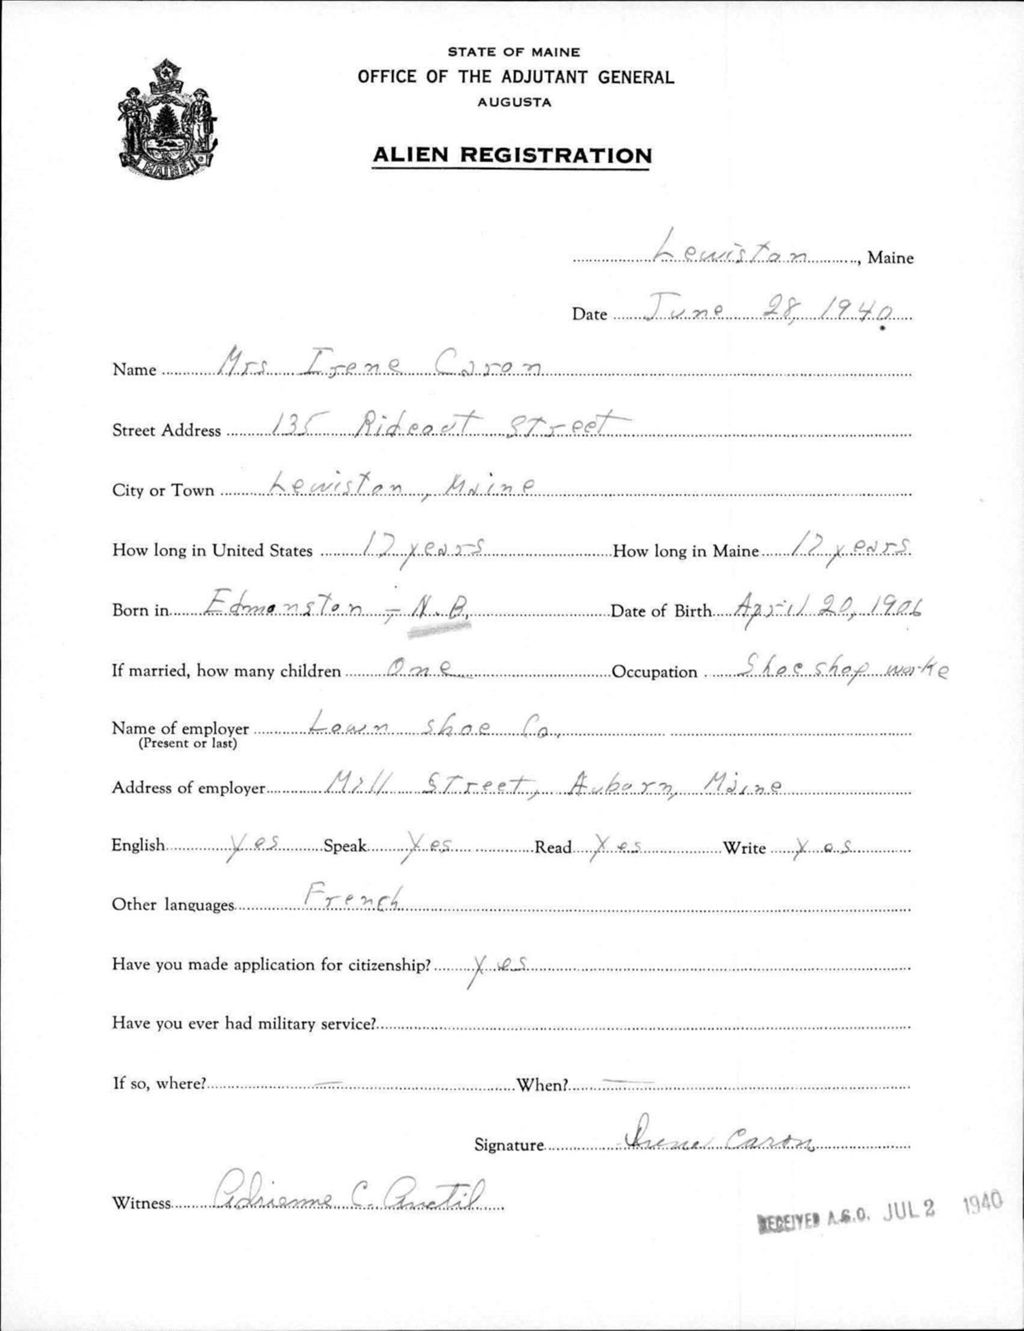 STATE OF MAINE
OFFICE OF THE ADJUTANT GENERAL
AUGUSTA
ALIEN REGISTRATION
MAINE
Lewiston, Maine
Date June 28, 1940
Name Mrs Irene Caron
Street Address 135 Rideout Street
City or Town Lewiston, Maine
How long in United States 17 years How long in Maine 17 years
Born in Edmonston - N.B. Date of Birth April 20, 1906
If married, how many children One Occupation Shoe shop worke
Name of employer Lown Shoe Co.
(Present or last)
Address of employer Mill Street, Auburn, Maine
English Yes Speak Yes Read Yes Write Yes
Other languages French
Have you made application for citizenship? Yes
Have you ever had military service?
If so, where? — When? —
Signature Irene Caron
Witness Adrienne C. Anctil
RECEIVED A.G.O. JUL 2 1940